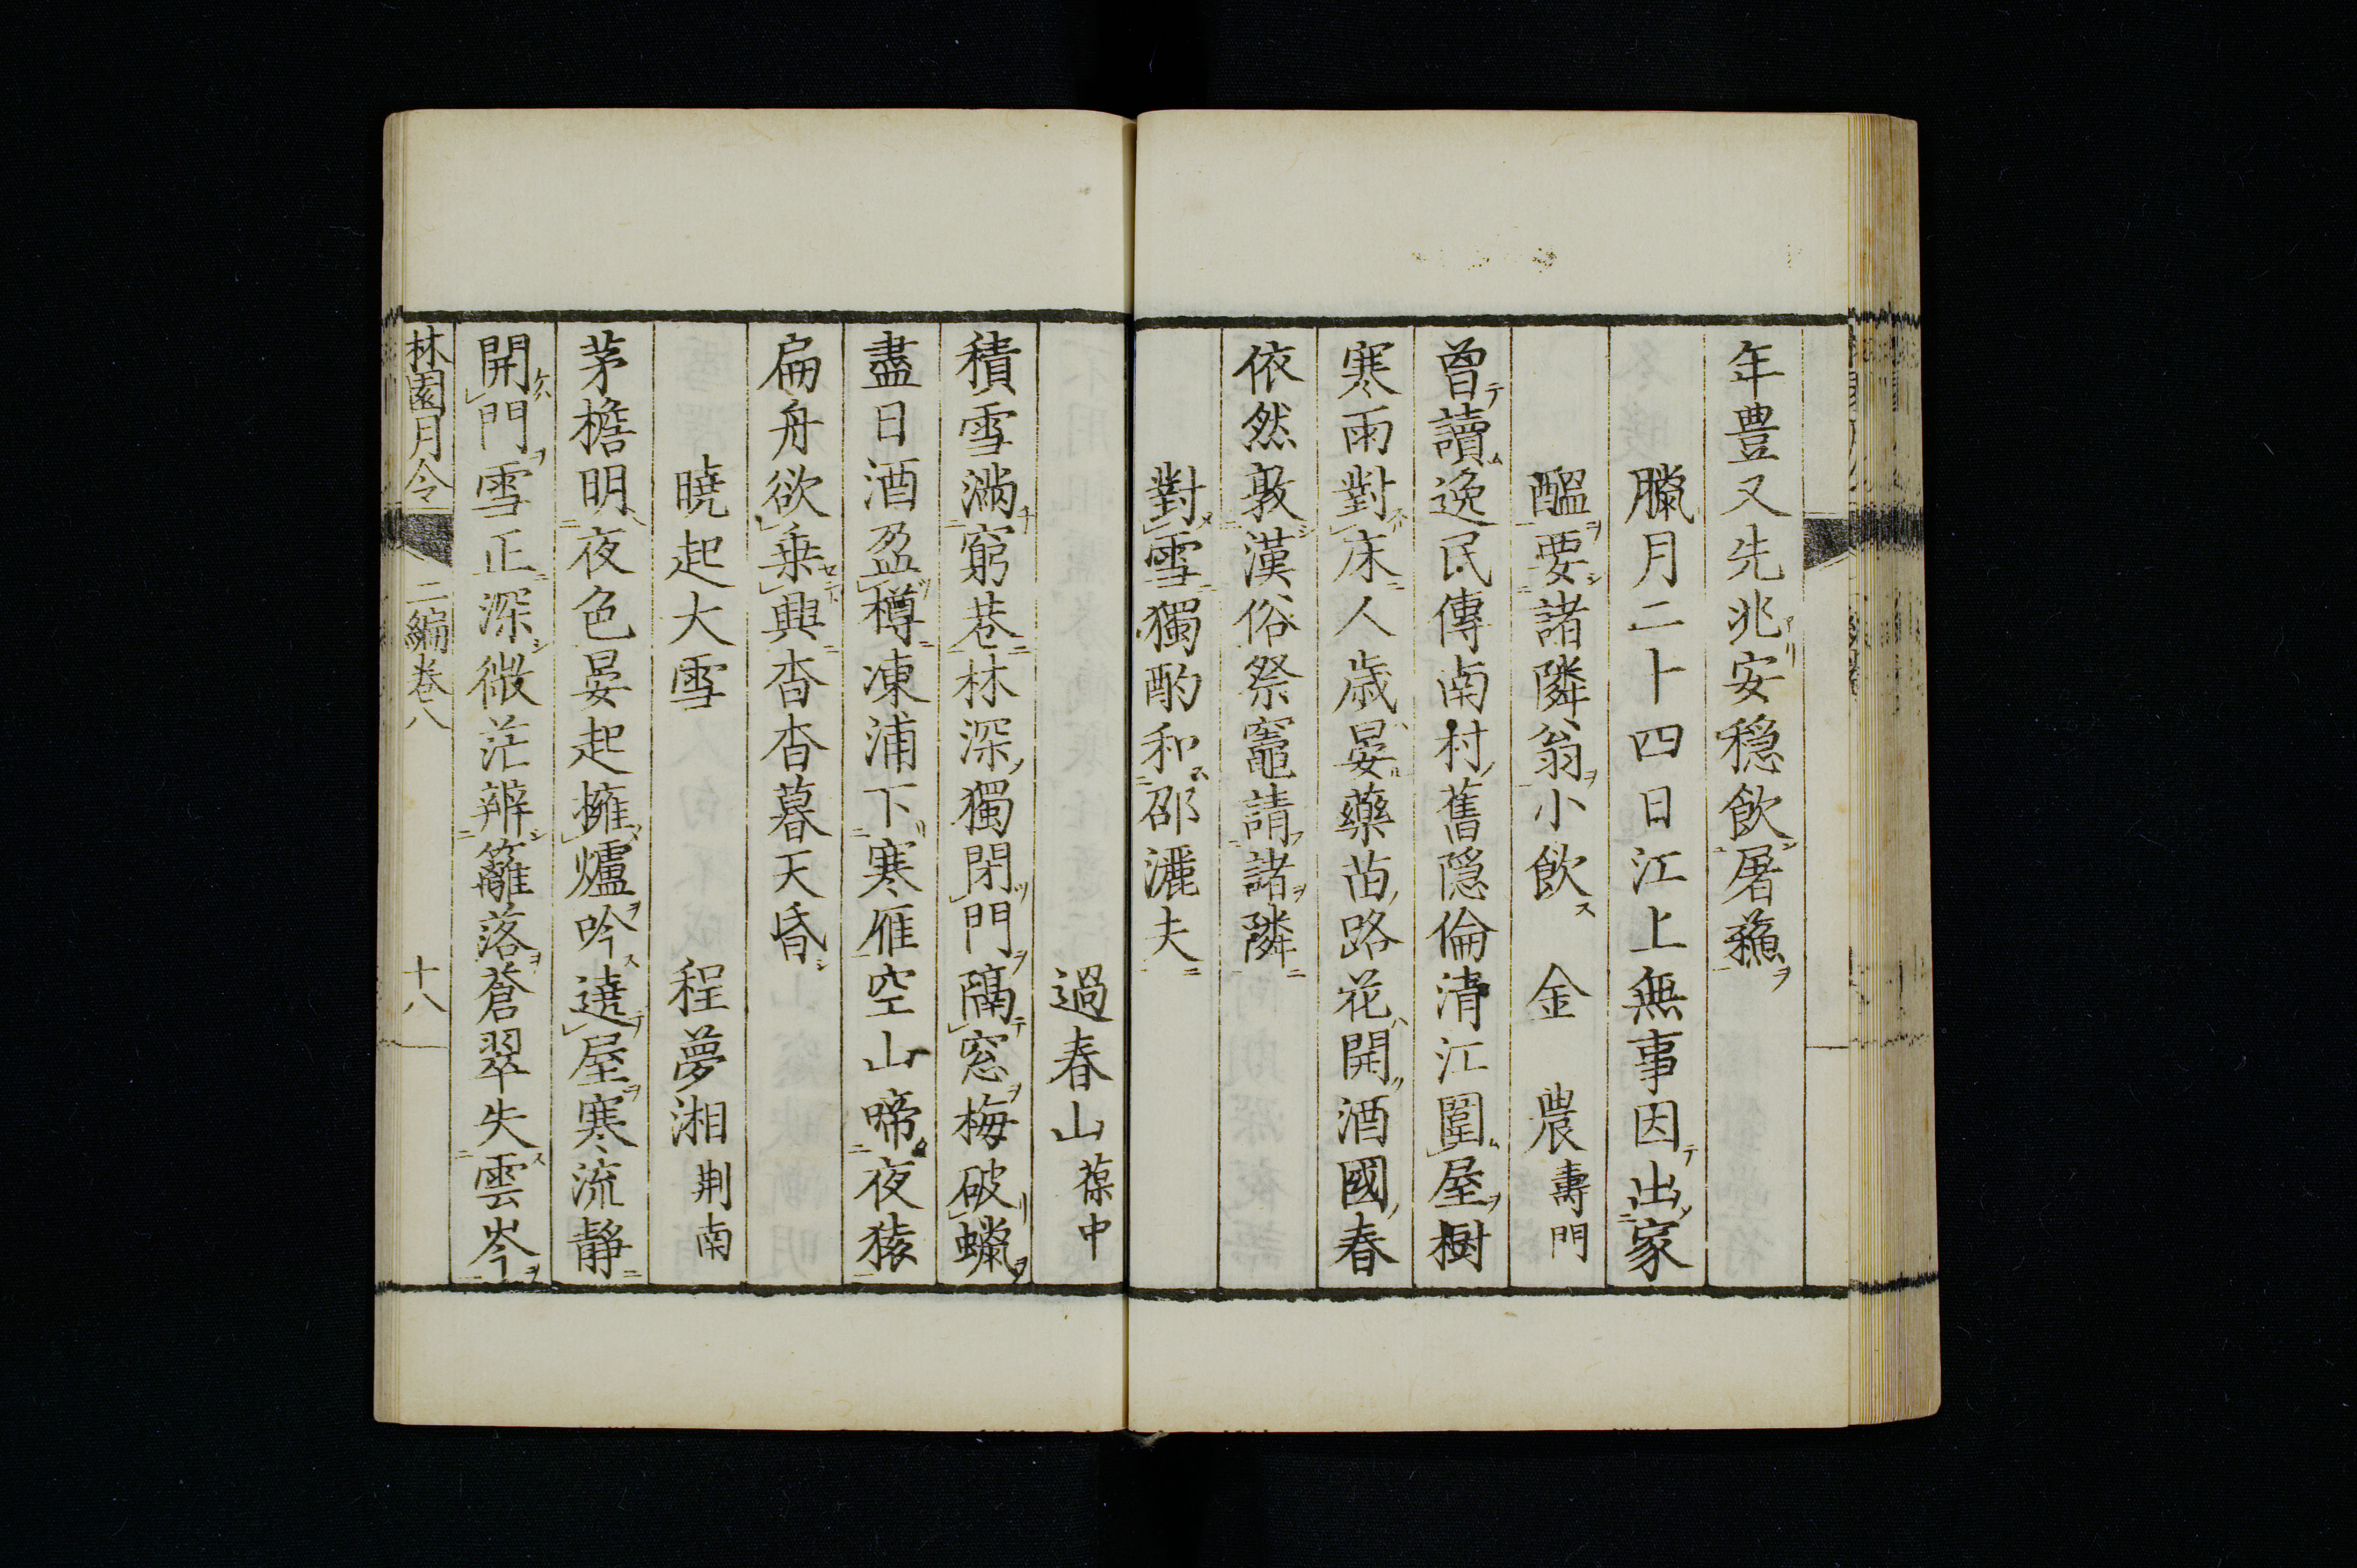 年豊又先兆安穏飲屠蘓
臘月二十四日江上無事因出家
醞要諸隣翁小飲 金 農 壽門
曾讀逸民傳南村舊隠倫清江圍屋樹
寒雨對床人歳晏藥苗路花開酒國春
依然敦漢俗祭竈請諸隣
對雪獨酌和邵灑夫
過春山 葆中
積雪満窮巷林深獨閉門隔窓梅破蠟
盡日酒盈樽凍浦下寒雁空山啼夜猿
扁舟欲乗興杳杳暮天昏
曉起大雪 程夢湘 荆南
茅檐明夜色晏起擁爐吟遶屋寒流静
開門雪正深微茫辨籬落蒼翠失雲岑
林園月令 二編巻八 十八